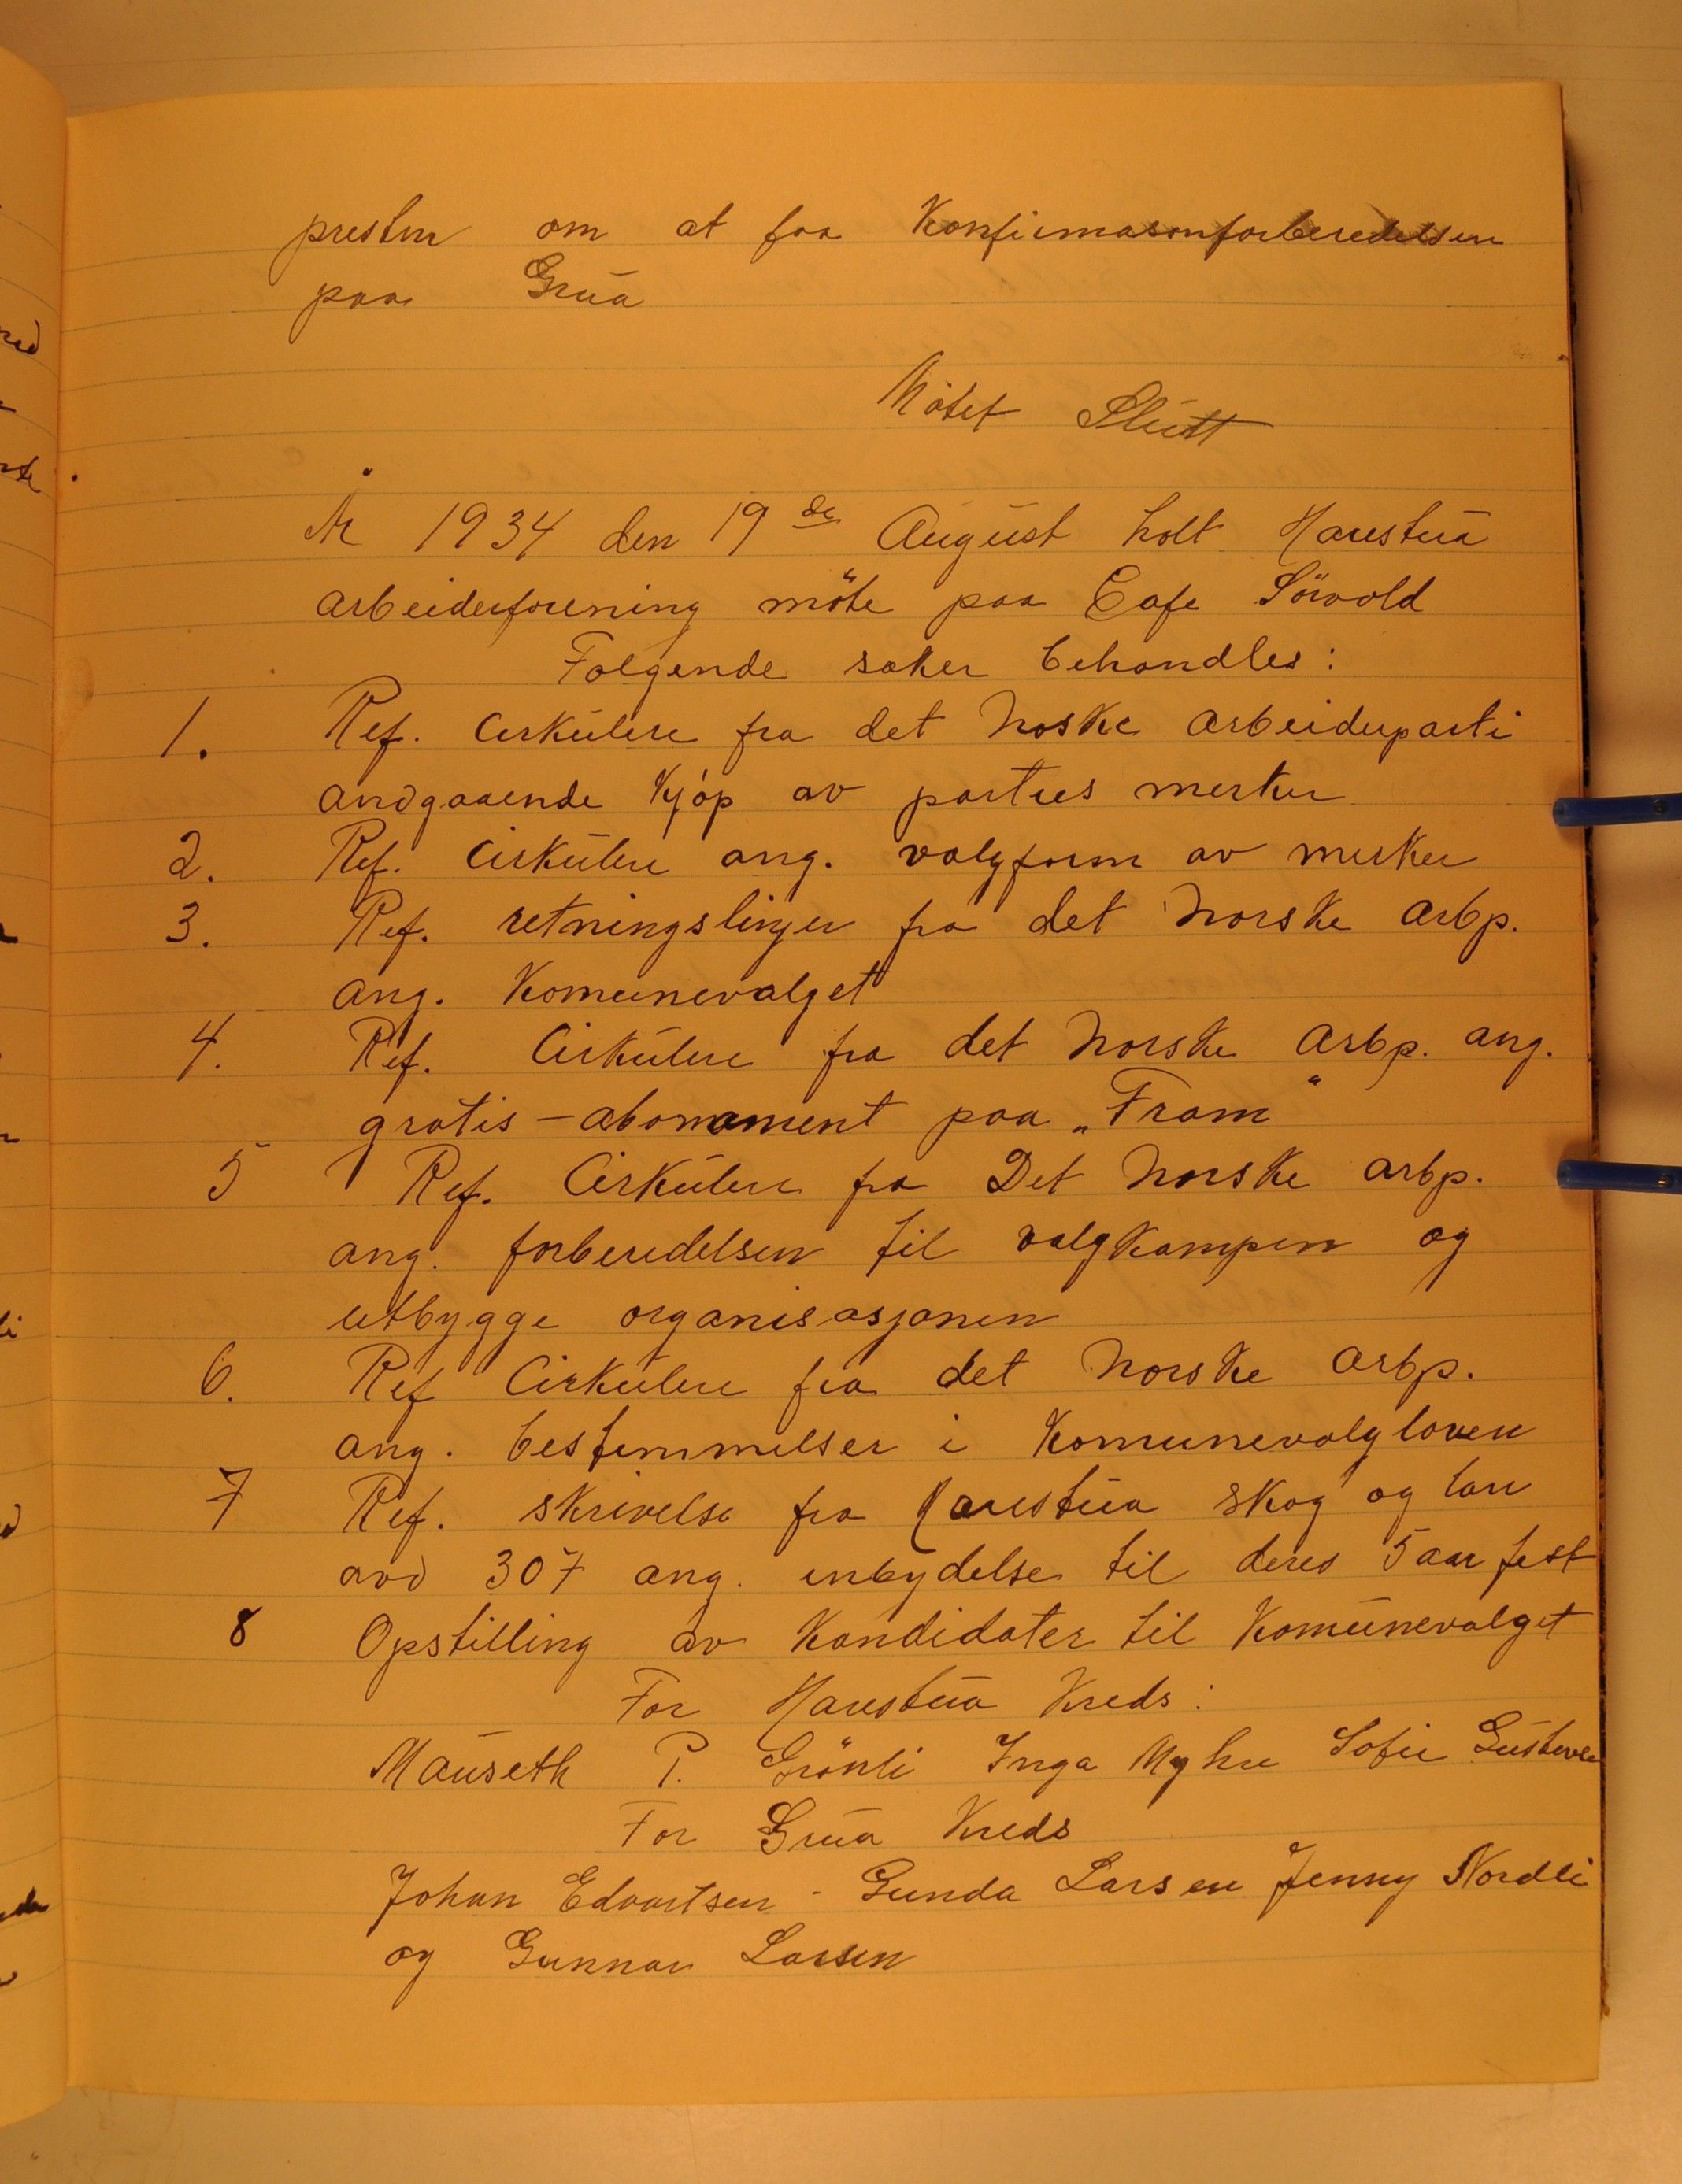 presten om at faa Konfirmasonforberedelsen
paa Grua
Møtet Slutt
År 1934 den 19de August holt Harestua
arbeiderforening möte paa Cafe Sörvold
Følgende saker behandles:
1. Ref. Cirkulere fra det Noske arbeiderparti
andgaaende Kjøp av parties merker
2. Ref. Cirkulere ang. valgform av merker
3. Ref. retningslinjer fra det Norske arbp.
ang. Komunevalget
4. Ref. Cirkulere fra det Norske arbp. ang.
gratis-abonament paa „Fram"
5 Ref. Cirkulere fra Det Norske arbp.
ang. forberedelsen til valgkampen og
utbygge organisasjonen
6. Ref Cirkulere fra det Norske arbp.
ang. bestemmelser i Komunevalgloven
7 Ref. skrivelse fra Harestua Skog og lan
avd 307 ang. inbydelse til deres 5 aar fest
8 Opstilling av Kandidater til Komunevalget
For Harestua Kreds:
Mauseth P. Grönli Inga Myhre Sofie
For Grua Kreds
Johan Edvartsen - Gunda Larsen Jenny Nordli
og Gunnar Larsen